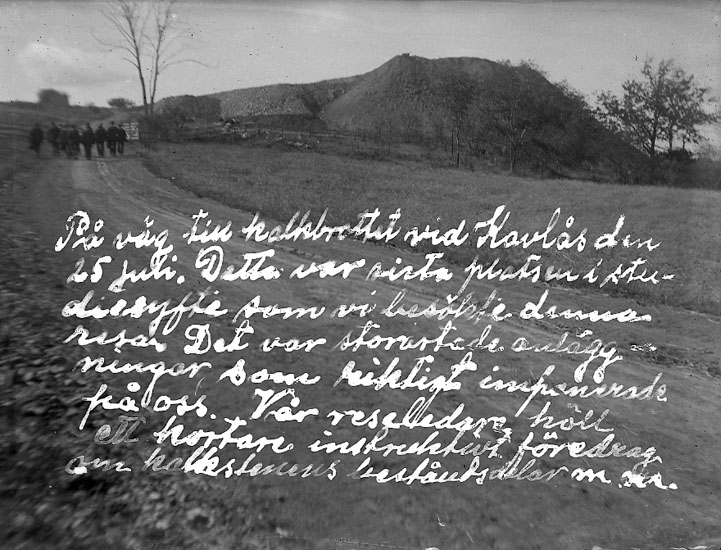 På väg till kalkbrottet vid Kavlås den
25 juli. Detta var sista platsen i stu-
diesyfte som vi besökte denna
resa. Det var storartade anlägg-
ningar som riktigt imponerade
på oss. Vår reseledare höll
ett kortare instruktivt föredrag
om kalkstenens beståndsdelar m. m.